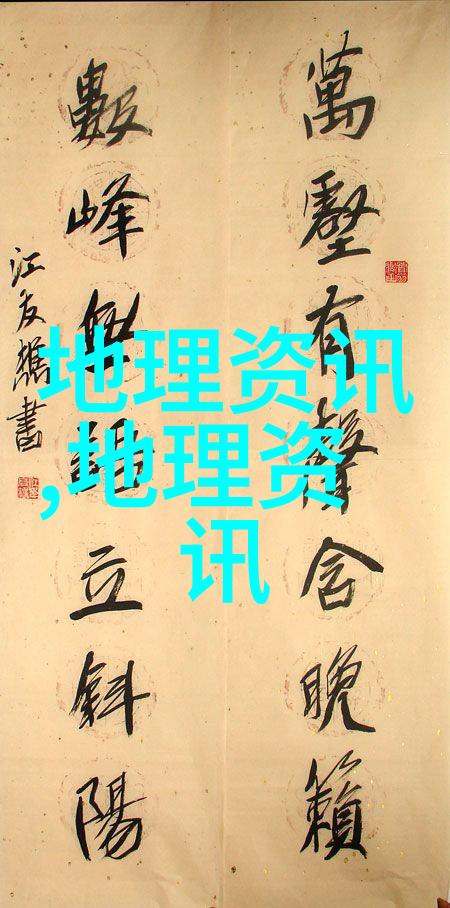 萬壑有聲含晚籟
數峰無語立斜陽
江友樵書
地理资讯
,地理资
讯